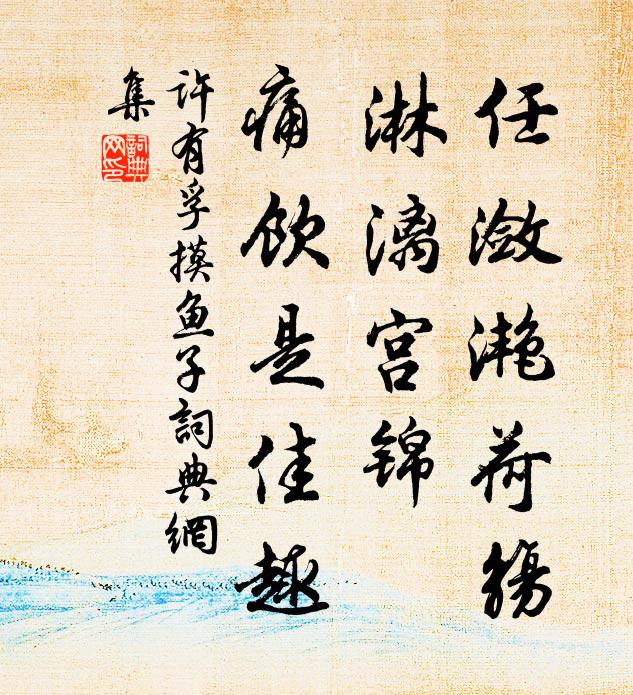 任潋滟荷觞
淋漓宫锦
痛饮是佳趣
许有孚摸鱼子詞典網
集
詞典網印